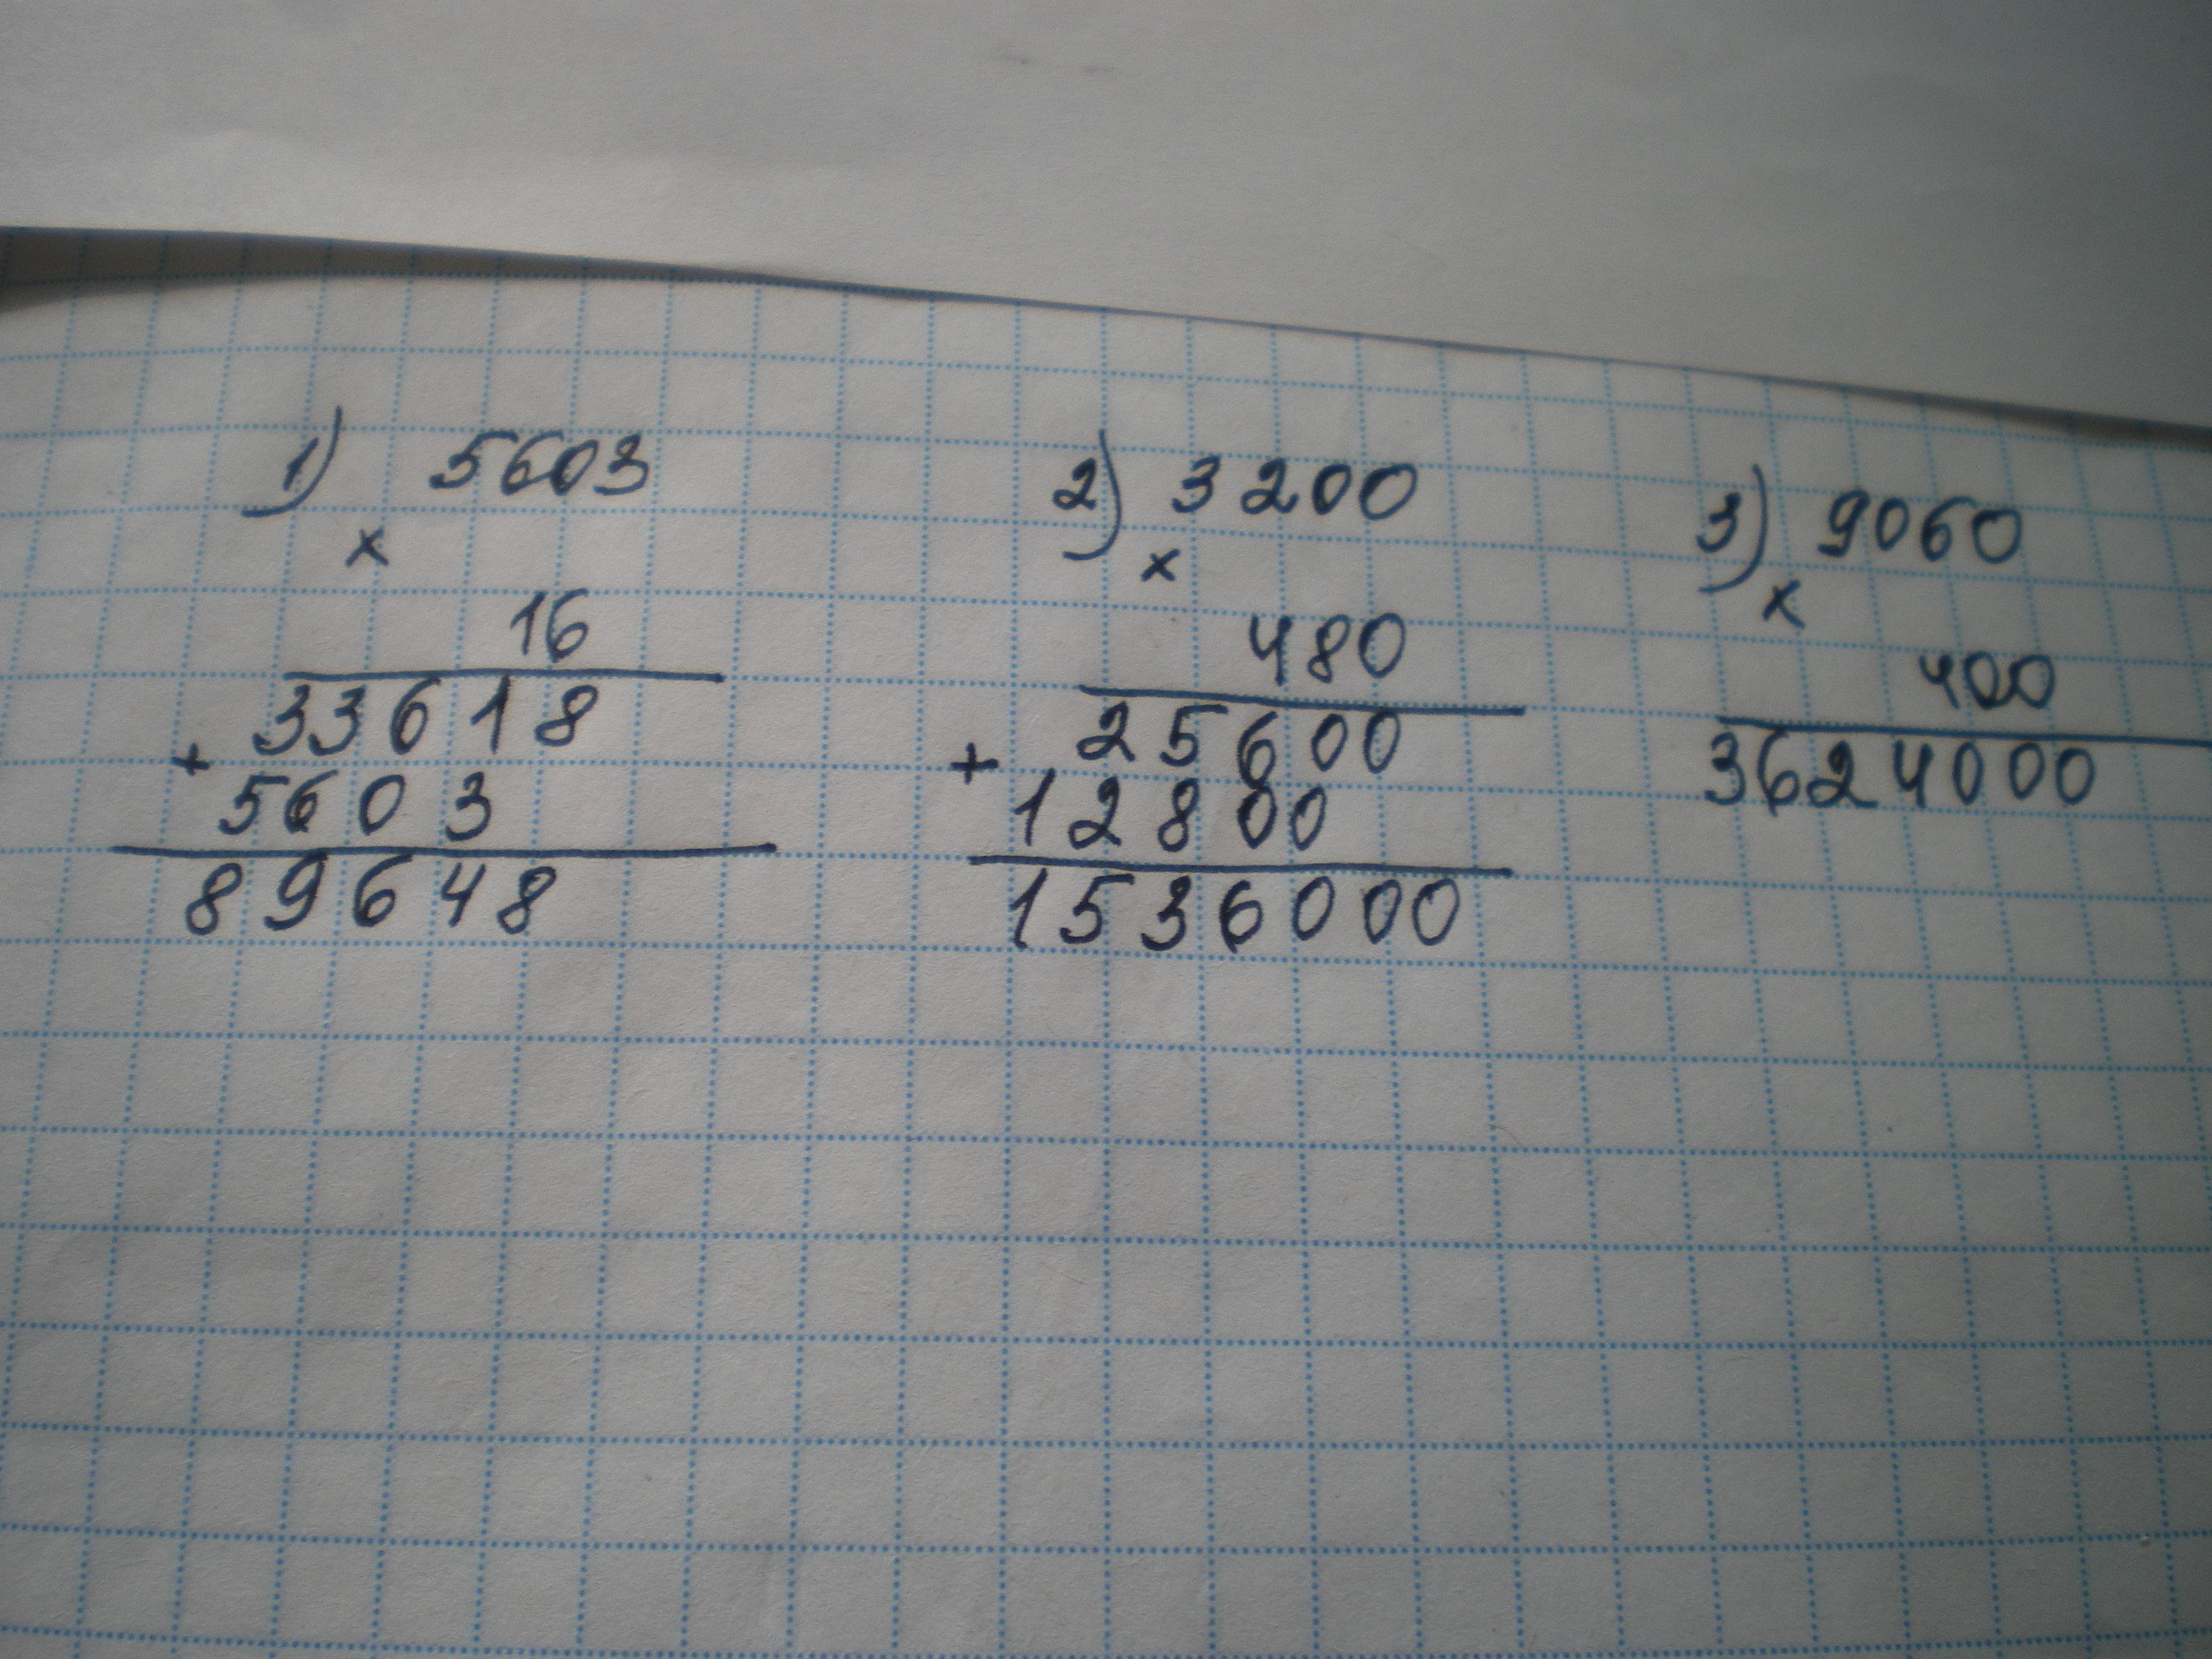 1) 5603
×
16
33618
+
5603
89648
2) 3200
×
480
25600
+
12800
1536000
3) 9060
×
400
3624000